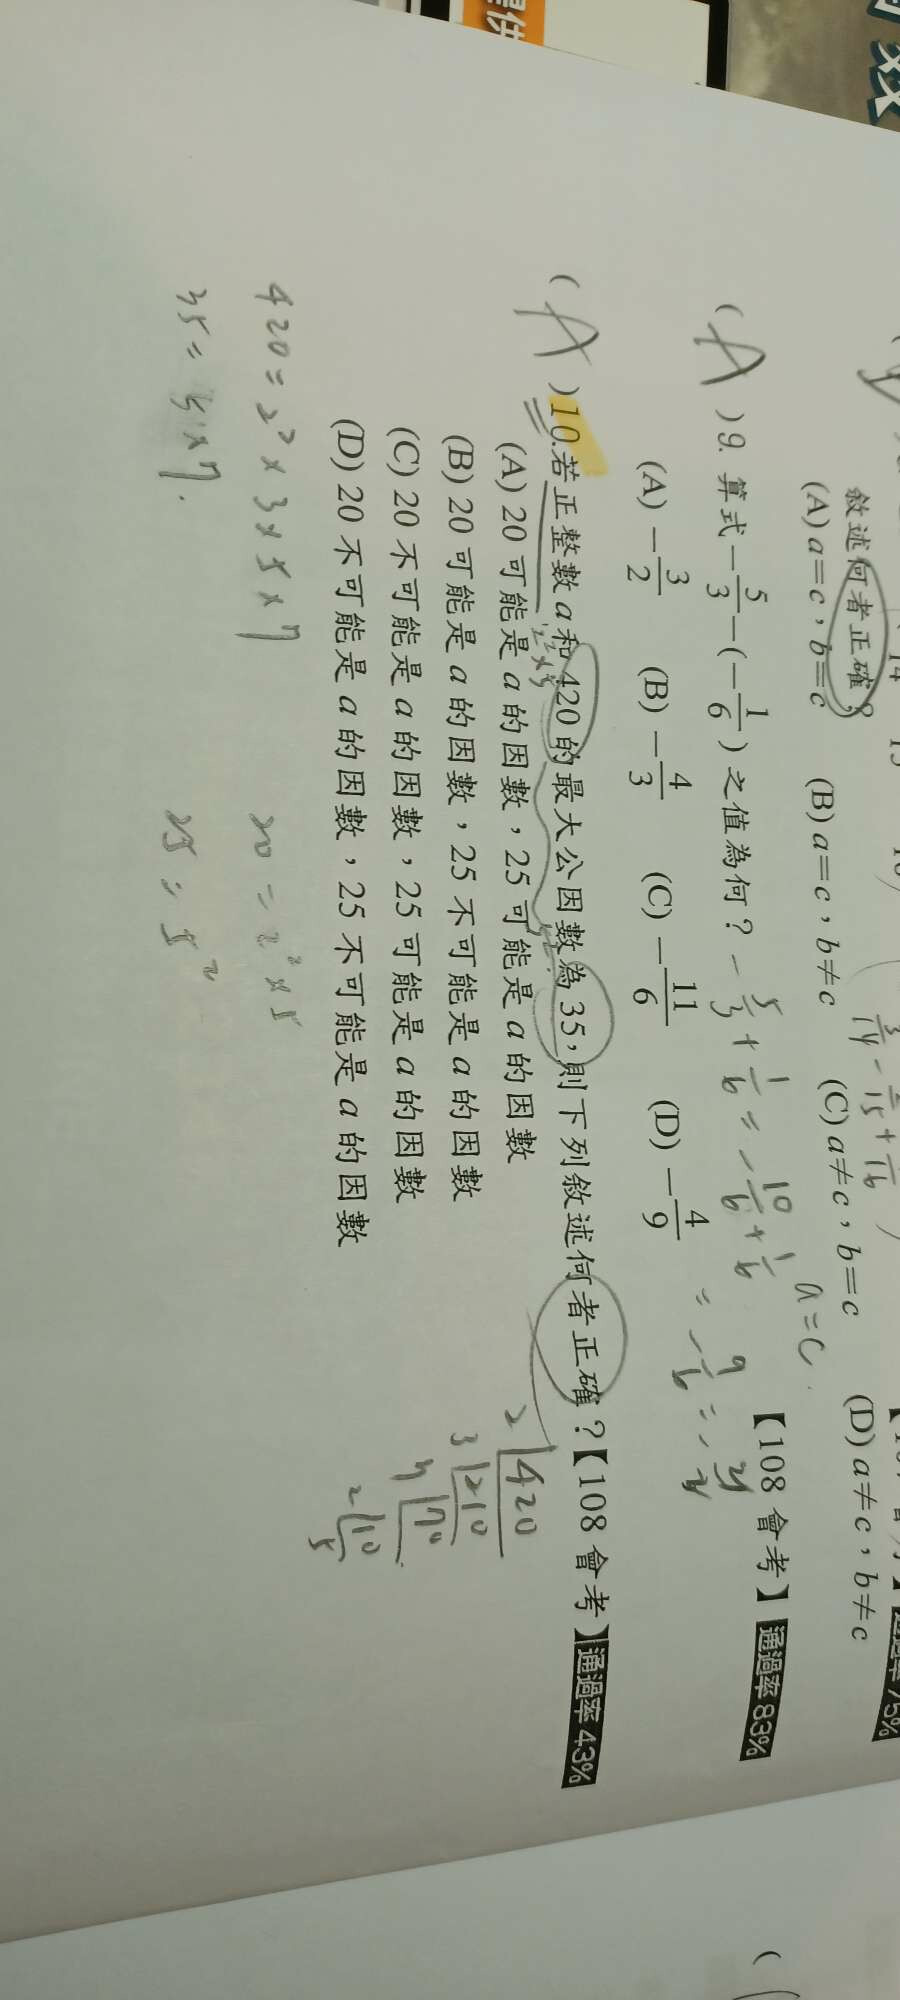 供
14 15 16
敘述何者正確？
(A) a＝c，b＝c (B) a＝c，b≠c (C) a≠c，b＝c (D) a≠c，b≠c
a = c
75%
(A) 9. 算式 −5/3−(−1/6) 之值為何？ 【108 會考】 通過率 83%
−5/3 + 1/6 = −10/6 + 1/6 = −9/6 = −3/2
(A) −3/2 (B) −4/3 (C) −11/6 (D) −4/9
(A) 10. 若正整數 a 和 420 的最大公因數為 35，則下列敘述何者正確？【108 會考】通過率 43%
(A) 20 可能是 a 的因數，25 可能是 a 的因數
(B) 20 可能是 a 的因數，25 不可能是 a 的因數
(C) 20 不可能是 a 的因數，25 可能是 a 的因數
(D) 20 不可能是 a 的因數，25 不可能是 a 的因數
2 420
3 210
70
2 10
5
420 = 2² × 3 × 5 × 7 20 = 2² × 5
35 = 5 × 7. 25 = 5²